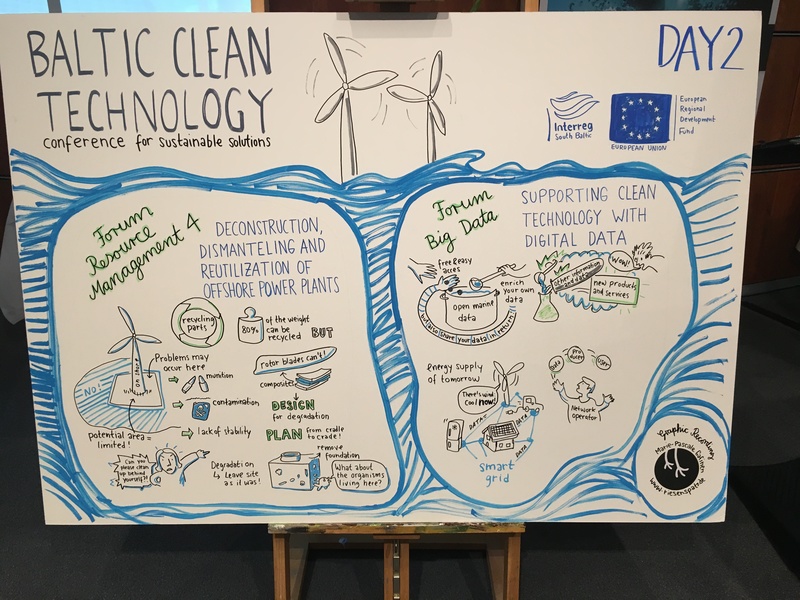 BALTIC CLEAN
TECHNOLOGY
conference for sustainable solutions
DAY 2
Interreg
South Baltic
EUROPEAN UNION
European
Regional
Development
Fund
Forum
Resource
Management 4
DECONSTRUCTION,
DISMANTELING AND
REUTILIZATION OF
OFFSHORE POWER PLANTS
recycling
parts
80%
of the weight
can be
recycled
BUT
rotor blades can't!
composites
DESIGN
for degradation
PLAN from cradle
to cradle!
NO!
on shore
Problems may
occur here
munition
contamination
lack of stability
potential area =
limited!
Can you
please clean
up behind
yourself?!
Degradation
↳ leave site
as it was!
remove
foundation
What about
the organisms
living here?
Forum
Big Data
SUPPORTING CLEAN
TECHNOLOGY WITH
DIGITAL DATA
free & easy
acces
open marine
data
but also share your data in return
enrich
your own
data
other information
and data
WOW!
new products
and services
energy supply
of tomorrow
There's wind.
Cool now!
DATA
DATA
DATA
smart
grid
Data
Pro
ducer
User
Network
operator
Graphic Recording
www.riesenspatz.de